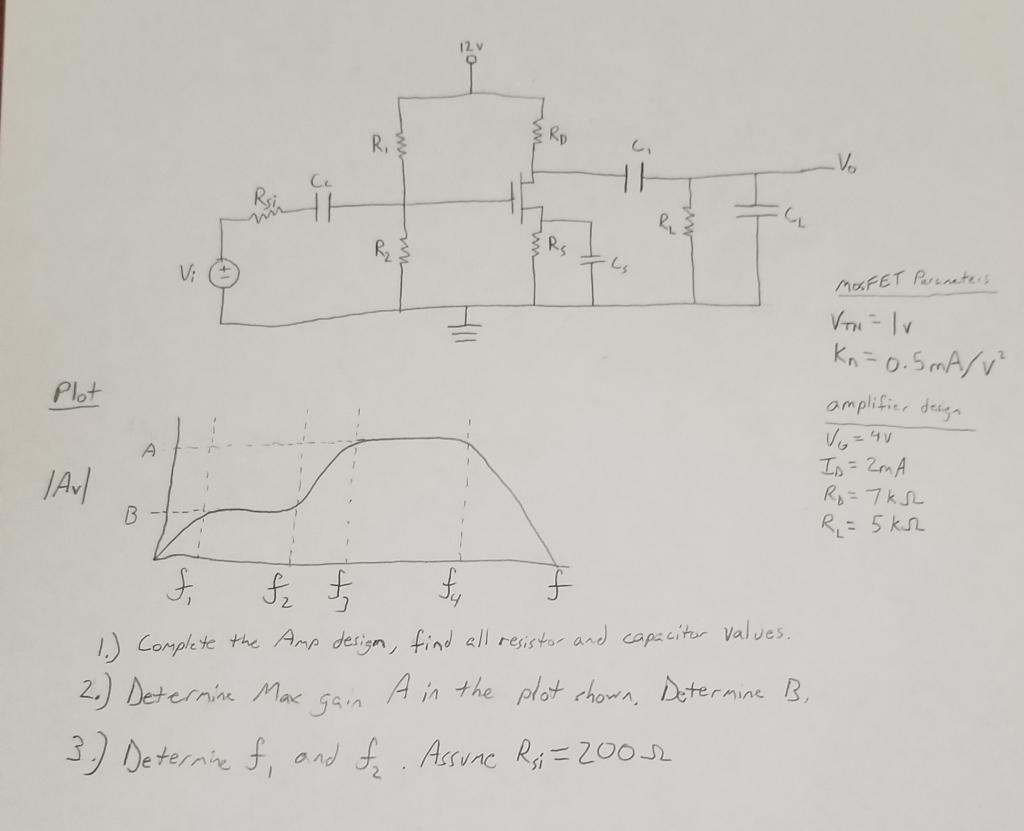 12v
R₁
R_D
C₁
V₀
Rsi
Cc
R₂
Rs
Cs
R_L
C_L
Vi
MOSFET Parameters
V_TN = 1v
Kn = 0.5mA/v²
amplifier design
V_G = 4v
I_D = 2mA
R_D = 7kΩ
R_L = 5kΩ
Plot
|Av|
A
B
f₁ f₂ f₃ f₄ f
1.) Complete the Amp design, find all resistor and capacitor values.
2.) Determine Max gain A in the plot shown. Determine B.
3.) Determine f₁ and f₂. Assume Rsi = 200Ω